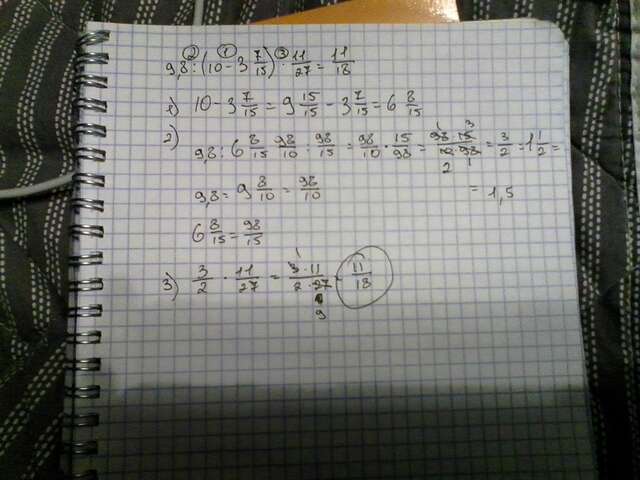 ② ① ③
9,8 : (10 - 3 7/15) · 11/27 = 11/18
1) 10 - 3 7/15 = 9 15/15 - 3 7/15 = 6 8/15
2) 9,8 : 6 8/15 98/10 : 98/15 = 98/10 · 15/98 = 98 · 15/10 · 98 = 3/2 = 1 1/2 =
9,8 = 9 8/10 = 98/10 = 1,5
6 8/15 = 98/15
3) 3/2 · 11/27 = 3 · 11/2 · 27 11/18